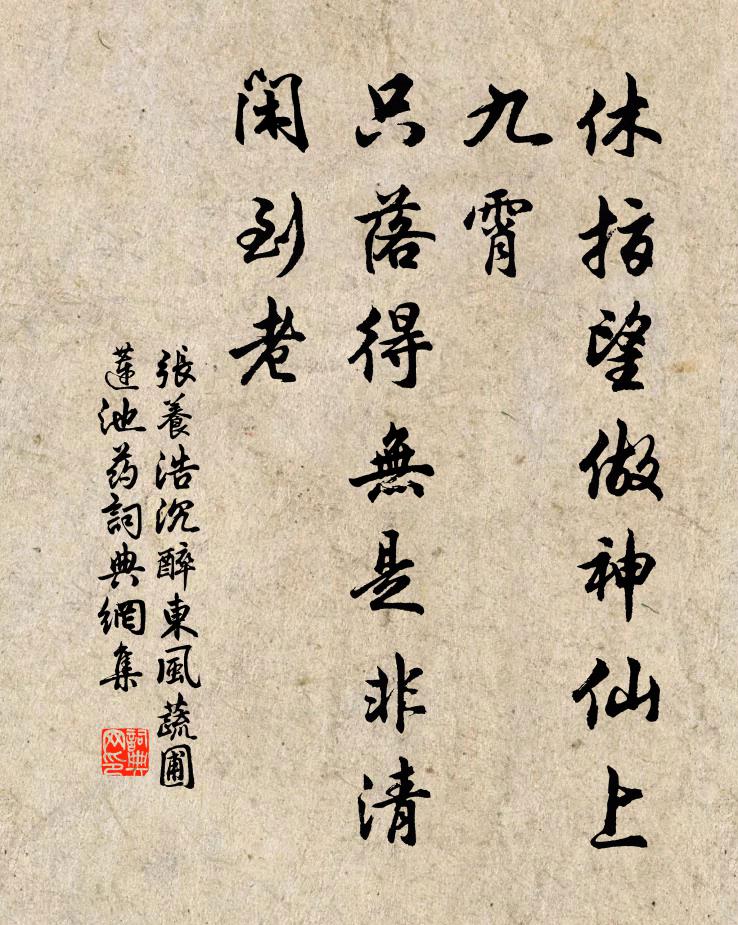 休指望做神仙上
九霄
只落得無是非清
閑到老
張養浩沉醉東風蔬圃
蓮池药詞典網集
詞典
网印